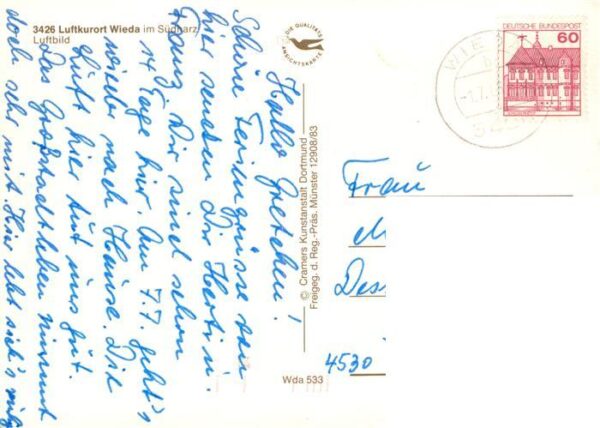 3426 Luftkurort Wieda im Südharz
Luftbild
DIE QUALITÄTS
ANSICHTSKARTE
Hallo Gretchen!
Schöne Feriengrüsse von
hier senden Dir Herta u.
Franz. Wir sind schon
14 Tage hier. Am 7.7. geht's
wieder nach Hause. Die
Luft hier tut uns gut.
Das Großstadtleben nimmt
doch sehr mit. Hier lebt sich's
© Cramers Kunstanstalt Dortmund
Freigeg. d. Reg.-Präs. Münster 12908/83
Wda 533
DEUTSCHE BUNDESPOST
60
WIE
-1.7.
Frau
M
Des
4530